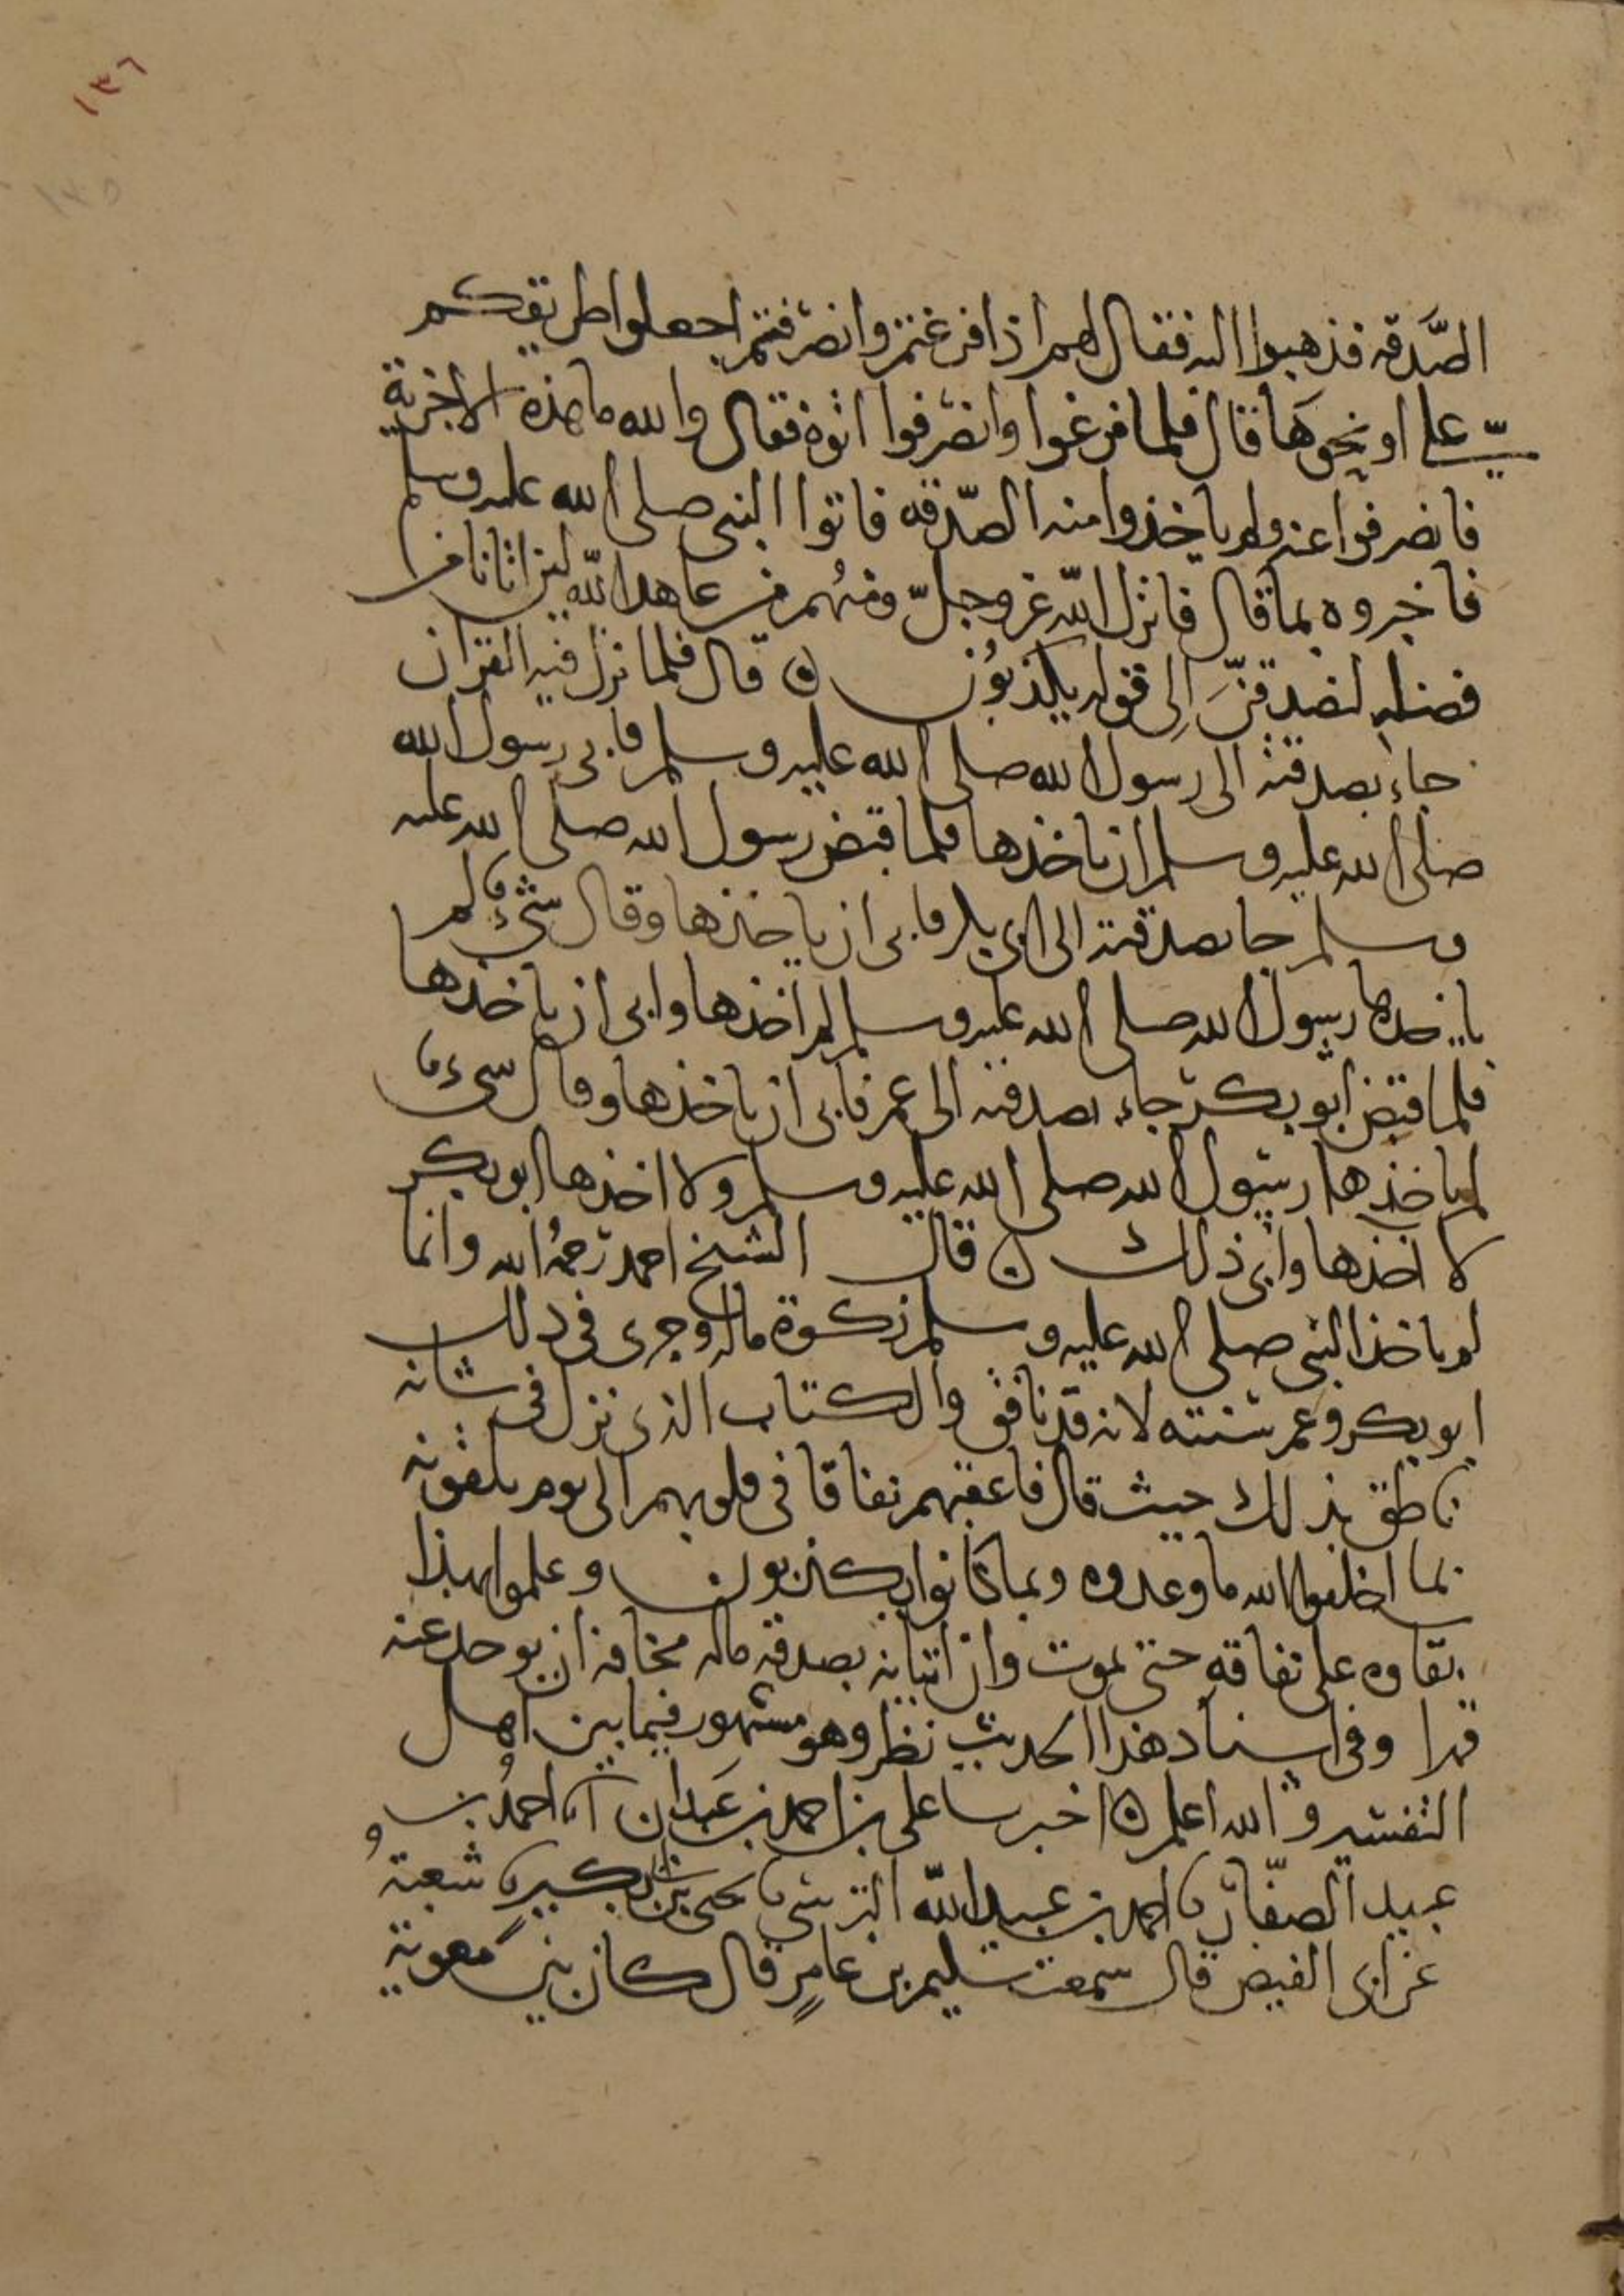 ١٣٦
١٣٥
الصَّدقه فذهبوا اليه فقال لهم اذا فرغتم وانصرفتم اجعلوا طريقكم
عليّ او نحوها قال فلما فرغوا وانصرفوا اتوه فقال والله ما هذه الا جزية
فانصرفوا عنه ولم ياخذوا منه الصّدقه فاتوا النبي صلى الله عليه وسلم
فاخبروه بما قال فانزل الله عز وجلّ ومنهم من عاهد الله لئن اتانا من
فضله لنصدقنّ إلى قوله يكذبون ه قال فلما نزل فيه القران
جاء بصدقته الى رسول الله صلى الله عليه وسلم فابى رسول الله
صلى الله عليه وسلم ان ياخذها فلما قبض رسول الله صلى الله عليه
وسلم جا بصدقته الى ابى بكر فابى ان ياخذها وقال شيء لم
ياخذها رسول الله صلى الله عليه وسلم لم اخذها وابى ان ياخذها
فلما قبض ابو بكر جاء بصدقته الى عمر فابى ان ياخذها وقال سىء
لم ياخذها رسول الله صلى الله عليه وسلم ولا اخذها ابو بكر
لا اخذها وابى ذلك ه قال الشيخ احمد رحمهُ الله وانما
لم ياخذ النبي صلى الله عليه وسلم زكوة ماله وجرى في ذلك
ابو بكر وعمر سنته لانه قد نافق والكتاب الذى نزل في شانه
ناطق بذلك حيث قال فاعقبهم نفاقا في قلوبهم الى يوم يلقونه
بما اخلفوا الله ما وعدوه وبما كانوا يكذبون وعلموا بهذا
بقاوه على نفاقه حتى يموت وان اتيانه بصدقة ماله مخافة ان يوخذ عنه
قهرا وفى اسناد هذا الحديث نظر وهو مشهور فيما بين اهل
التفسير والله اعلم ه اخبرنا على بن احمد بن عبدان انا احمد بن
عبيد الصفّار نا احمد بن عبيد الله النرسي نا يحى بن ابى بكير نا شعبة
عن ابى الفيض قال سمعت سليم بن عامر قال كان بين معوية